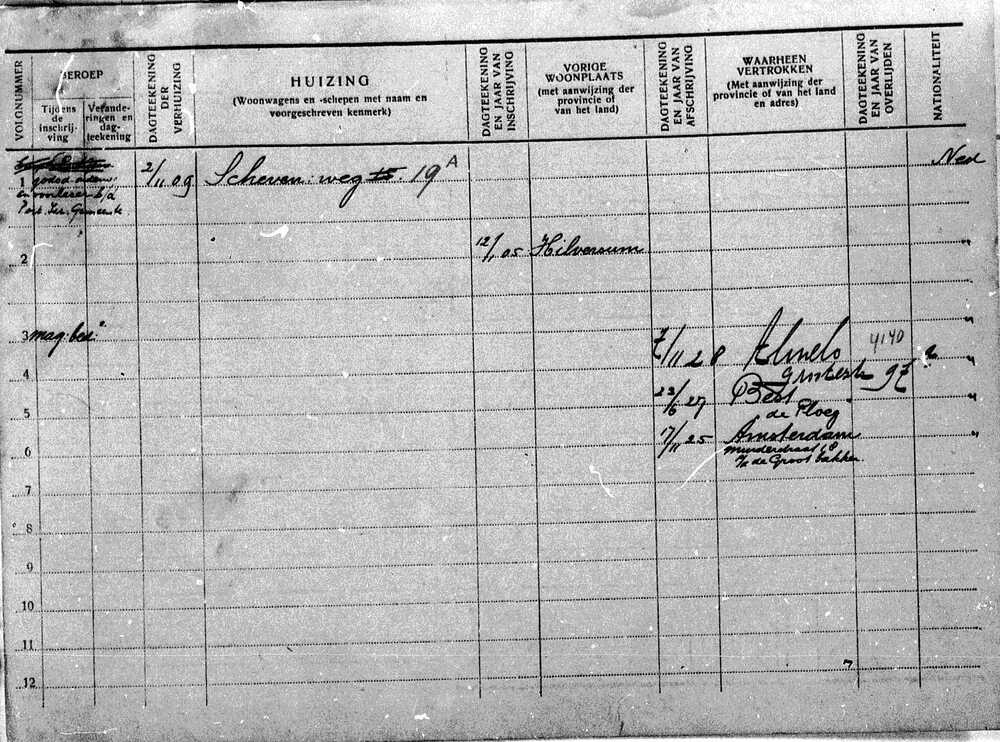 VOLGNUMMER
BEROEP
Tijdens
de
inschrij-
ving
Verande-
ringen en
dag-
teekening
DAGTEEKENING
DER
VERHUIZING
HUIZING
(Woonwagens en -schepen met naam en
voorgeschreven kenmerk)
DAGTEEKENING
EN JAAR VAN
INSCHRIJVING
VORIGE
WOONPLAATS
(met aanwijzing der
provincie of
van het land)
DAGTEEKENING
EN JAAR VAN
AFSCHRIJVING
WAARHEEN
VERTROKKEN
(Met aanwijzing der
provincie of van het land
en adres)
DAGTEEKENING
EN JAAR VAN
OVERLIJDEN
NATIONALITEIT
1 godsd. onderw.
en voorlezer b/d
Port. Isr. Gemeente.
2/11 09 Scheven: weg 19 A
Ned
2 12/1 05 Hilversum "
3 mag. bed. "
7/11 28 Almelo 4140 "
4 97
23/6 27 Best
de Ploeg "
5
17/11 25 Amsterdam "
6 de Groot bakker
7
8
9
10
11
12